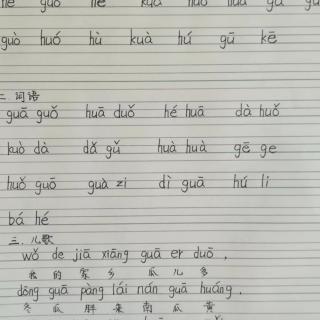 guò huó hù kuà hú gū kē
二. 词语
guā guǒ huā duǒ hé huā dà huǒ
kuò dà dǎ gǔ huà huà gē ge
huǒ guō guà zi dì guā hú li
bá hé
三. 儿歌
wǒ de jiā xiāng guā er duō ,
我 的 家 乡 瓜 儿 多
dōng guā pàng lái nán guā huáng .
冬 瓜 胖 来 南 瓜 黄